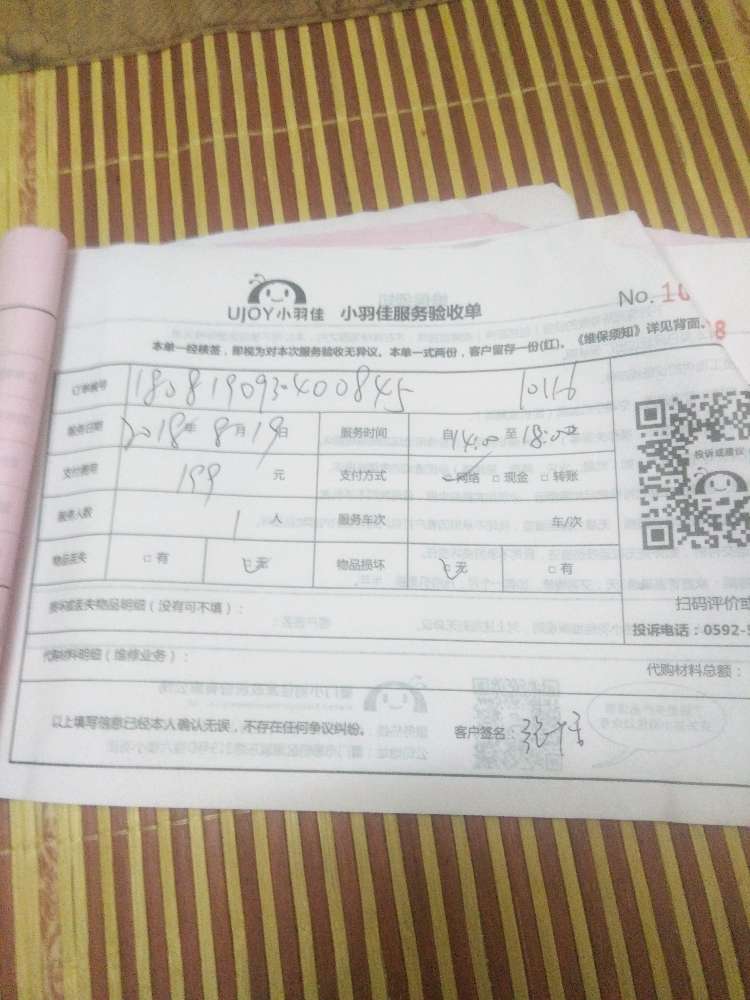 UJOY小羽佳 小羽佳服务验收单
No. 10
8
本单一经核签，即视为对本次服务验收无异议。本单一式两份，客户留存一份(红)。《维保须知》详见背面。
订单编号 180819093400845 10116
服务日期 2018年8月19日 服务时间 自14:00至18:00
支付费用 199 元 支付方式 □网络 □现金 □转账
投诉或建议
服务人数 1 人 服务车次 车/次
物品丢失 □有 □无 物品损坏 □无 □有
扫码评价或
损坏或丢失物品明细（没有可不填）：
投诉电话：0592-5
代购材料明细（维修业务）：
代购材料总额：
以上填写信息已经本人确认无误，不存在任何争议纠纷。 客户签名：